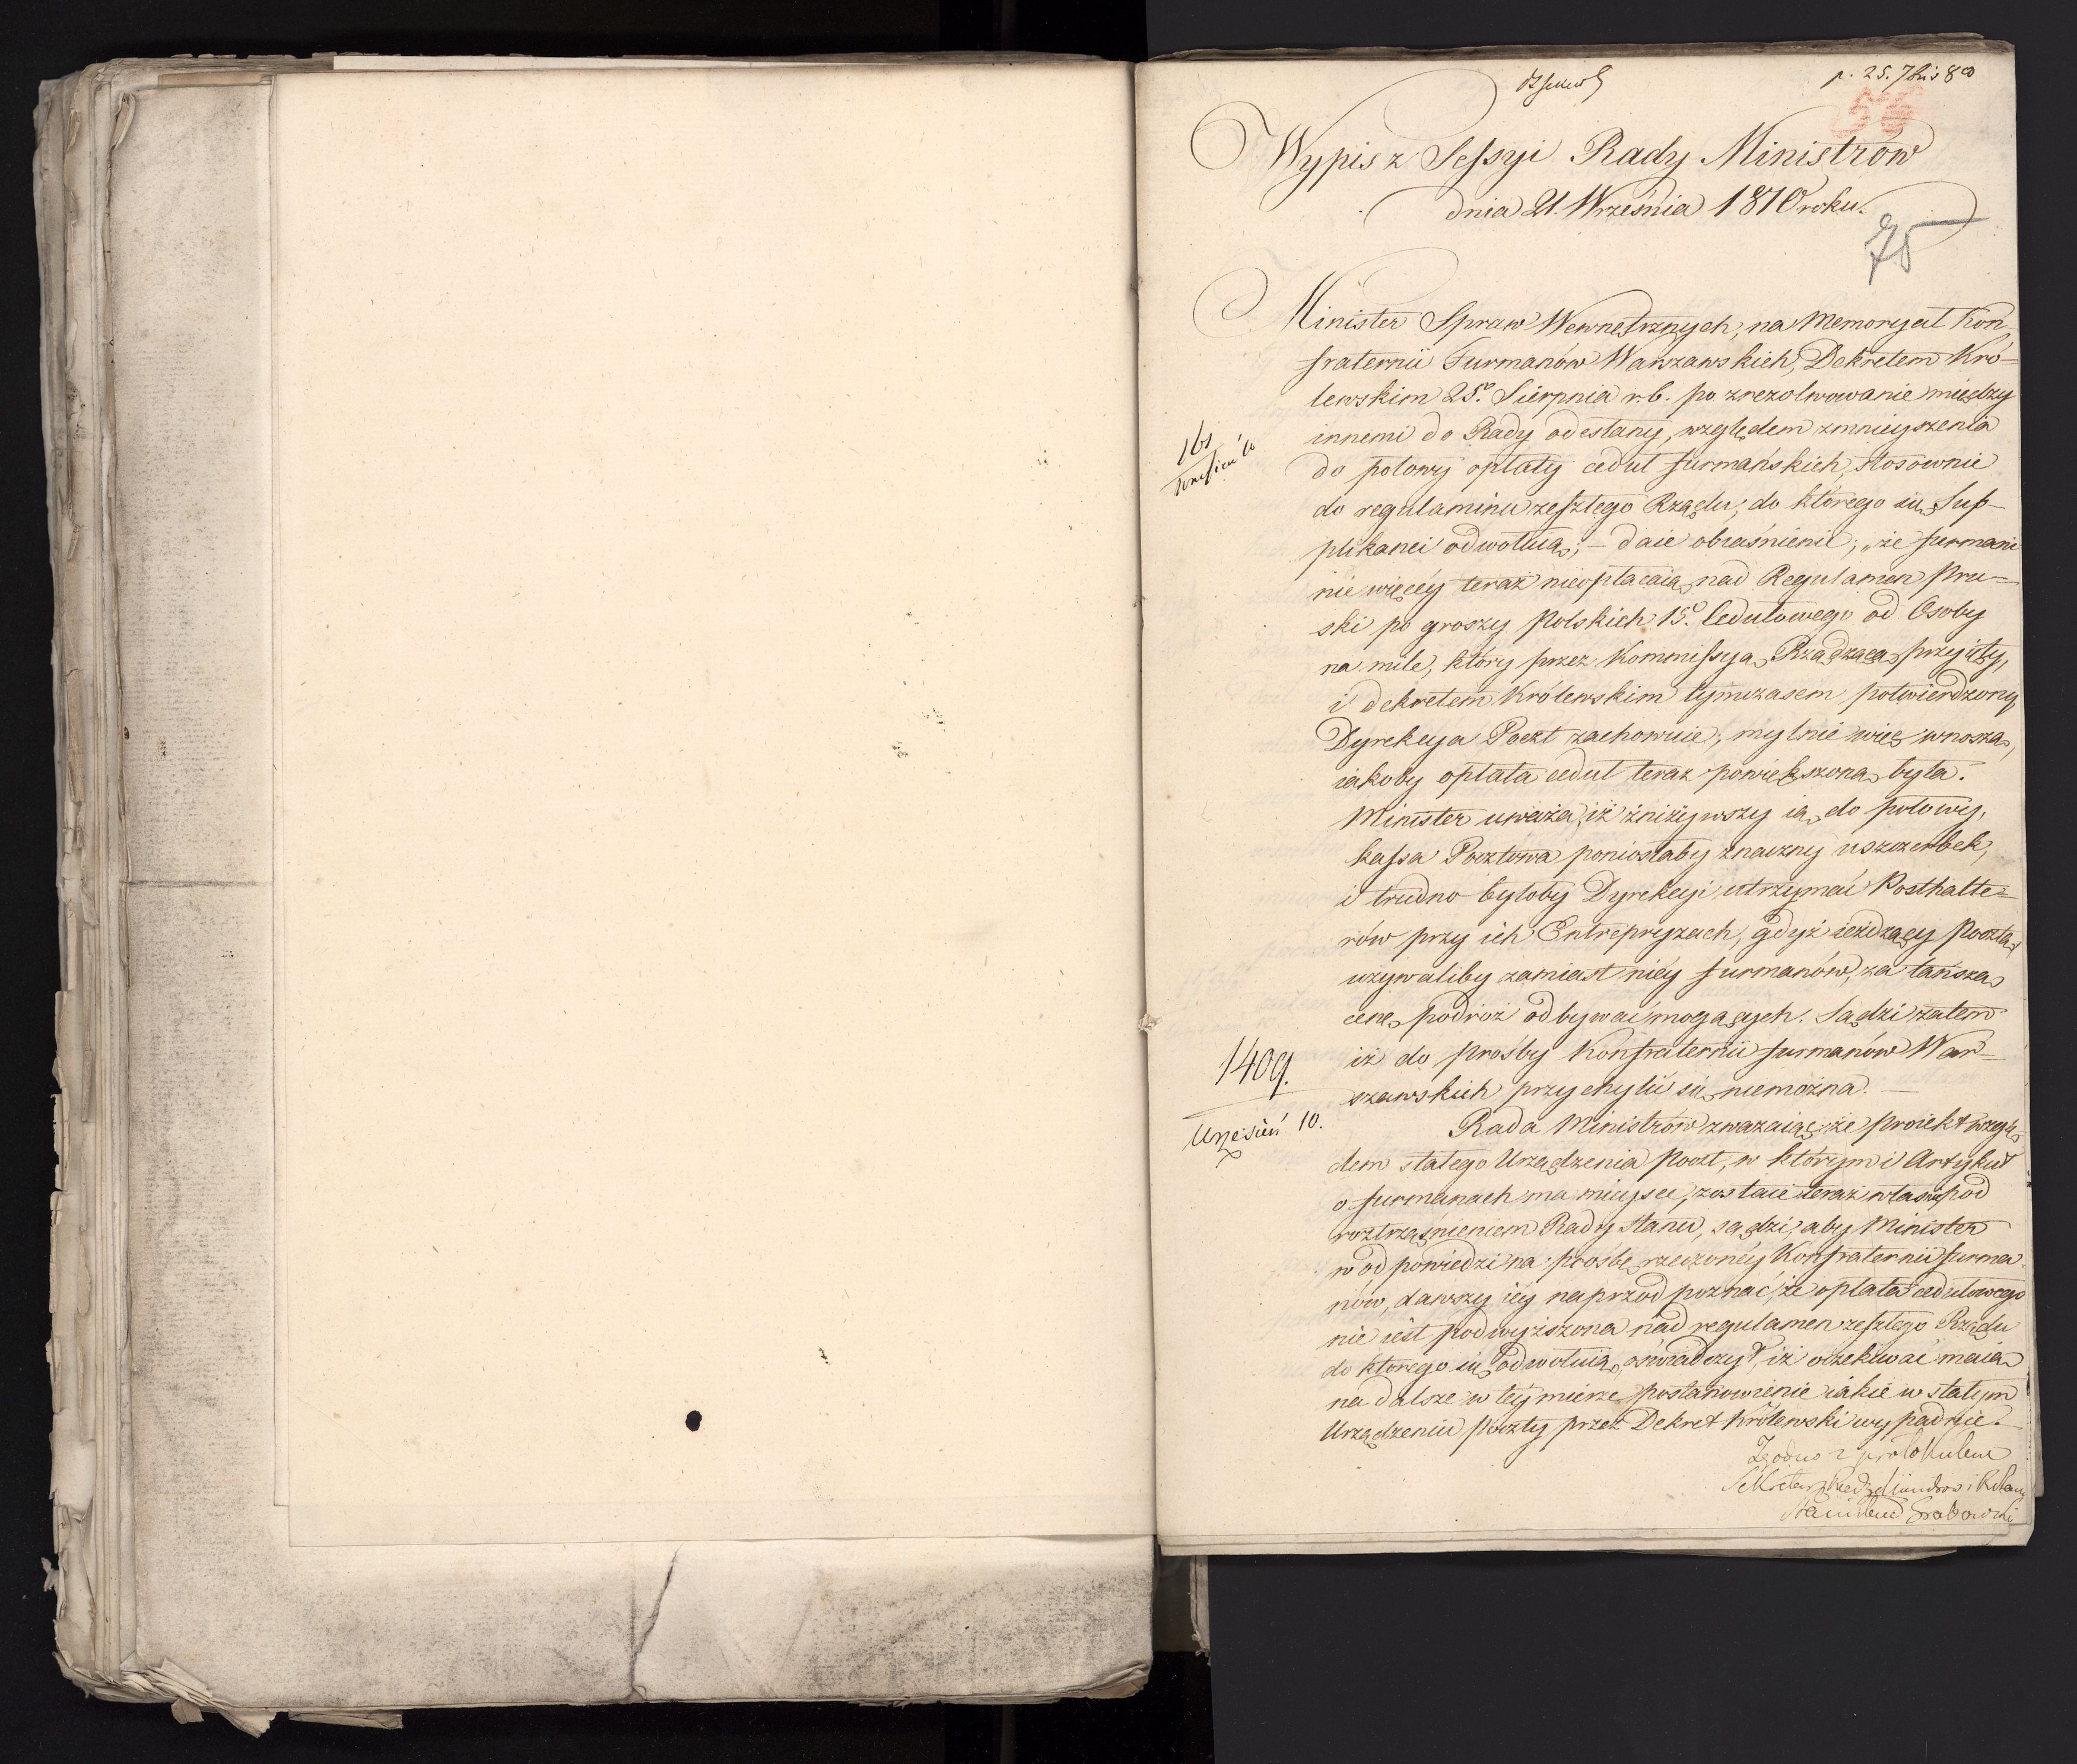 p. 25. 7bris 810
Wypis z Sessyi Rady Ministrów
dnia 21. Września 1810 roku.
75
Minister Spraw Wewnętrznych, na Memoryał Kon
fraternii Furmanów Warszawskich, Dekretem Kró=
lewskim 25º. Sierpnia r.b. po zrezolwowanie między
innemi do Rady odesłany, względem zmnieyszenia
do połowy opłaty cedul furmańskich, stosownie
do regulaminu zeszłego Rządu, do którego się Sup-
plikanci odwołuią; – daie obiaśnienie; „że furmani
nie więcéy teraz nieopłacaią nad Regulamen Pru=
ski po groszy Polskich 15º. Cedułowego od Osoby
na milę, który przez Kommissyą Rządzącą przyięty,
i dekretem Królewskim tymczasem potwierdzony
Dyrekcya Poczt zachowuie; mylnie więc wnoszą,
iakoby opłata cedul teraz powiększona była.
Minister uważa, iż zniżywszy ią do połowy,
kassa Pocztowa poniosłaby znaczny uszczerbek,
i trudno byłoby Dyrekcyi utrzymać Posthalte=
rów przy ich Entrepryzach, gdyż ieżdzący Pocztą
używaliby zamiast niéy furmanów, za tańszą
cenę podróż odbywać mogących. Sądzi zatem
iż do prośby Konfraternii furmanów War=
szawskich przychylić się niemożna. –
Rada Ministrów zważaiąc, że proiekt wzglę-
dem stałego Urządzenia Poczt, w którym i Artykuł
o furmanach ma mieysce, zostaie teraz właśnie pod
roztrząśnieniem Rady Stanu, sądzi, aby Minister
w odpowiedzi na prośbę rzeczonéy Konfraternii furma
nów, dawszy iéy naprzód poznać, że opłata cedułowego
nie iest podwyższona nad regulamen zeszłego Rządu
do którego się odwołuią, oświadczył, iż oczekiwać maią
na dalsze w téy mierze postanowienie iakie w stałym
Urządzeniu Poczty przez Dekret Królewski wypadnie.
161
Wrzesień 10
1409.
Wrzesień 10.
Zgodno z protokułem
Sekretarz Rady Ministrów i R. Stanu
Stanisław Grabowski